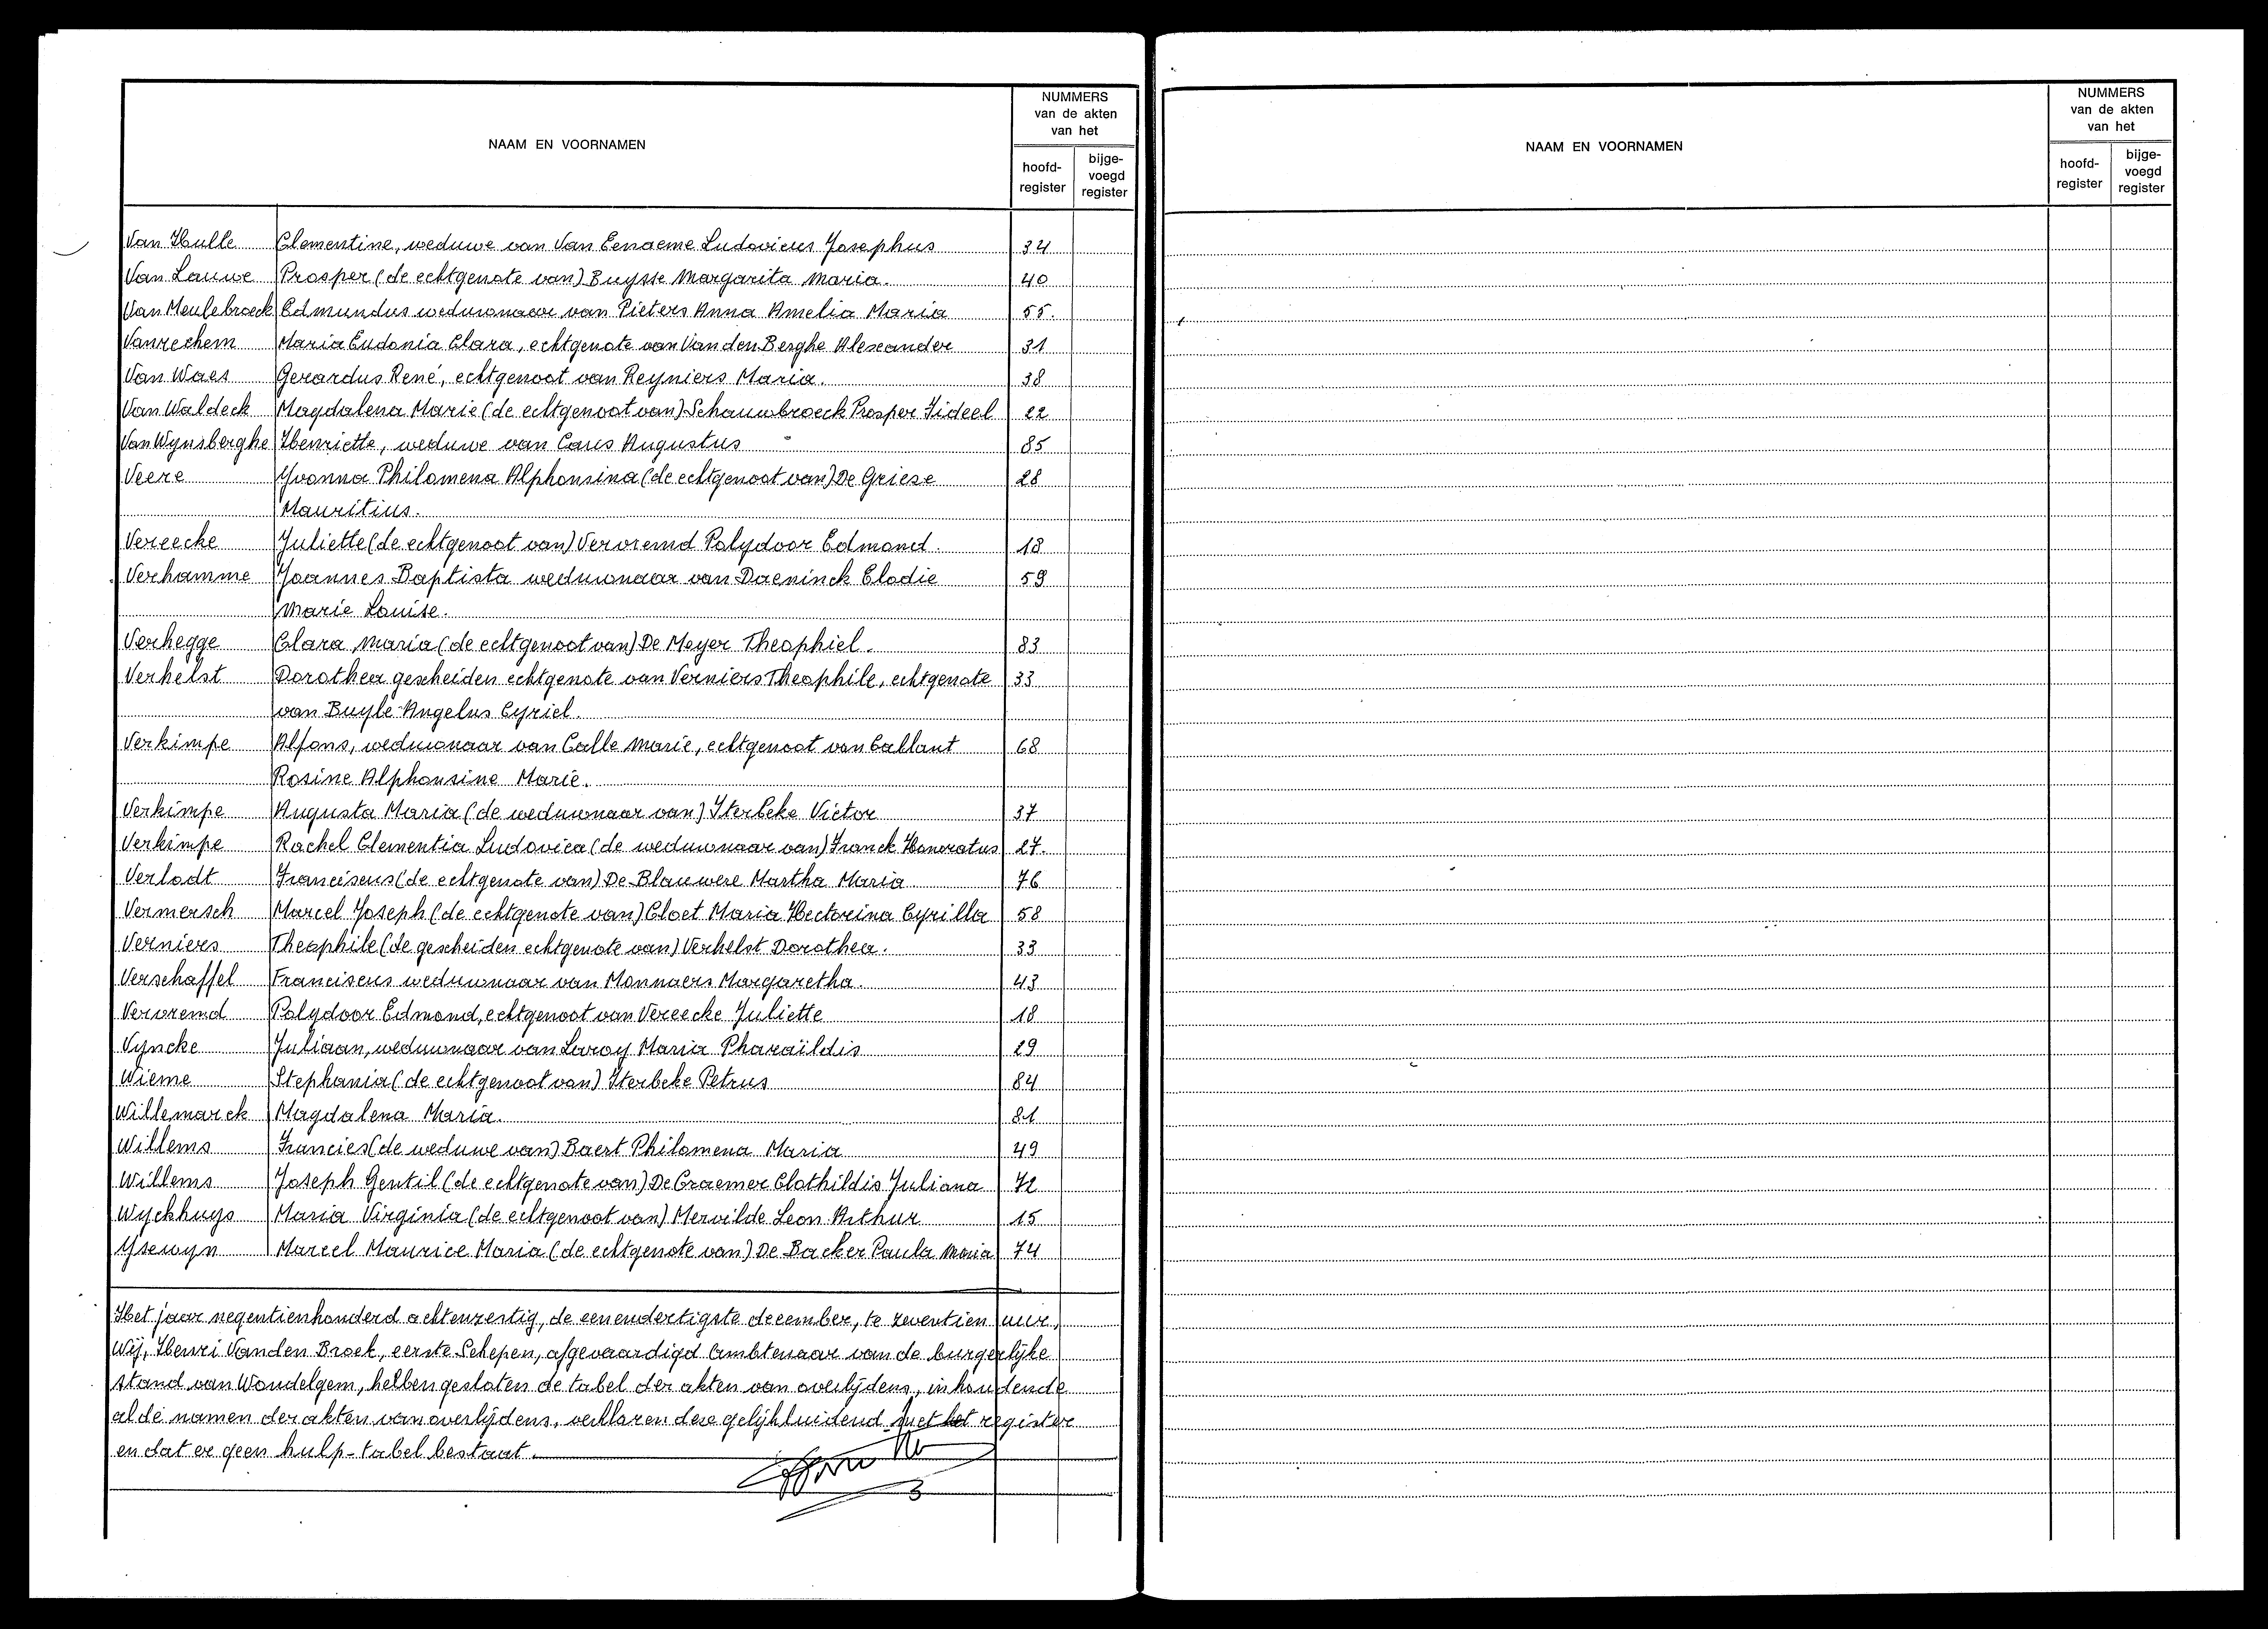 NAAM EN VOORNAMEN
NUMMERS
van de akten
van het
hoofd-
register
bijge-
voegd
register
Van Hulle Clementine, weduwe van Van Eenaeme Ludovicus Josephus 34
Van Lauwe Prosper (de echtgenote van) Buysse Margarita Maria. 40
Van Meulebroeck Edmundus weduwnaar van Pieters Anna Amelia Maria 55.
Vanrechem Maria Eudonia Clara, echtgenote van Van den Berghe Alexander 31
Van Waes Gerardus René, echtgenoot van Reyniers Maria. 38
Van Waldeck Magdalena Marie (de echtgenoot van) Schauwbroeck Prosper Fideel 22
Van Wynsberghe Henriette, weduwe van Caus Augustus 85
Veere Yvonna Philomena Alphonsina (de echtgenoot van) De Griese 28
Mauritius.
Vereecke Juliette (de echtgenoot van) Vervremd Polydoor Edmond. 18
Verhamme Joannes Baptista weduwnaar van Daeninck Elodie 59
Marie Louise.
Verhegge Clara Maria (de echtgenoot van) De Meyer Theophiel. 83
Verhelst Dorothea gescheiden echtgenote van Verniers Theophile, echtgenote 33
van Buyle Angelus Cyriel.
Verkimpe Alfons, weduwnaar van Calle Marie, echtgenoot van Callant 68
Rosine Alphonsine Marie.
Verkimpe Augusta Maria (de weduwnaar van) Sterbeke Victor 37
Verkimpe Rachel Clementia Ludovica (de weduwnaar van) Franck Honoratus 27.
Verlodt Franciscus (de echtgenote van) De Blauwere Martha Maria 76
Vermersch Marcel Joseph (de echtgenote van) Cloet Maria Hectorina Cyrilla 58
Verniers Theophile (de gescheiden echtgenote van) Verhelst Dorothea. 33
Verschaffel Franciscus weduwnaar van Monnaers Margaretha. 43
Vervremd Polydoor Edmond, echtgenoot van Vereecke Juliette 18
Vyncke Juliaan, weduwnaar van Laroy Maria Pharaïldis 29
Wieme Stephania (de echtgenoot van) Sterbeke Petrus 84
Willemarck Magdalena Maria. 81
Willems Francies (de weduwe van) Baert Philomena Maria 49
Willems Joseph Gentil (de echtgenote van) De Craemer Clothildis Juliana 72
Wyckhuys Maria Virginia (de echtgenoot van) Mervilde Leon Arthur 15
Ysewyn Marcel Maurice Maria (de echtgenote van) De Backer Paula Maria 74
Het jaar negentienhonderd achtenzestig, de eenendertigste december, te zeventien uur,
Wij, Henri Vanden Broek, eerste Schepen, afgevaardigd ambtenaar van de burgerlijke
stand van Wondelgem, hebben gesloten de tabel der akten van overlijdens, inhoudende
al de namen der akten van overlijdens, verklaren deze gelijkluidend met het register
en dat er geen hulp-tabel bestaat.
NAAM EN VOORNAMEN
NUMMERS
van de akten
van het
hoofd-
register
bijge-
voegd
register